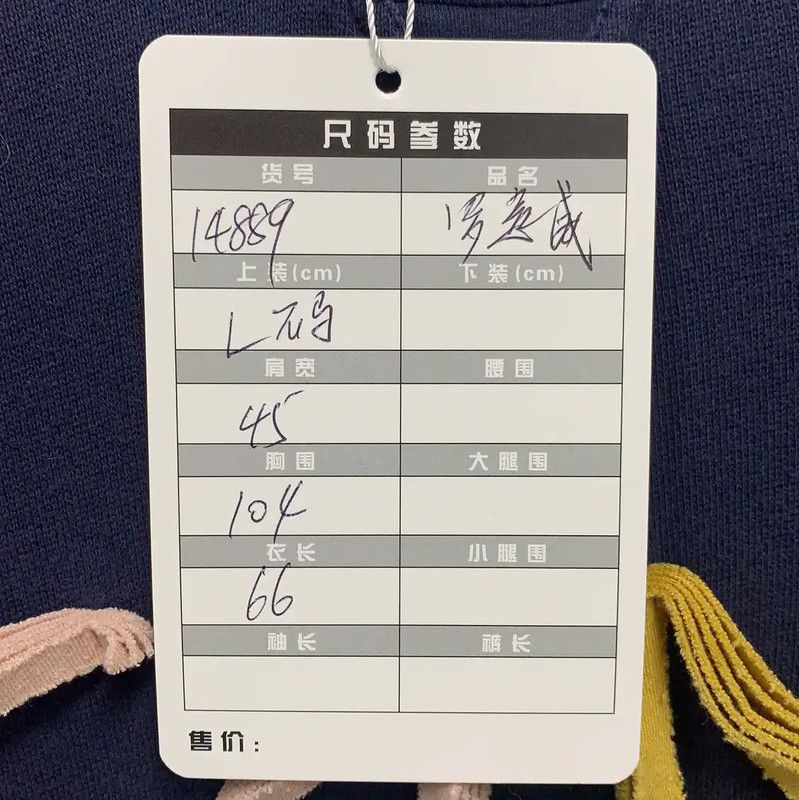 尺码参数
货号 品名
14889 罗意威
上装(cm) 下装(cm)
L码
肩宽 腰围
45
胸围 大腿围
104
衣长 小腿围
66
袖长 裤长
售价: